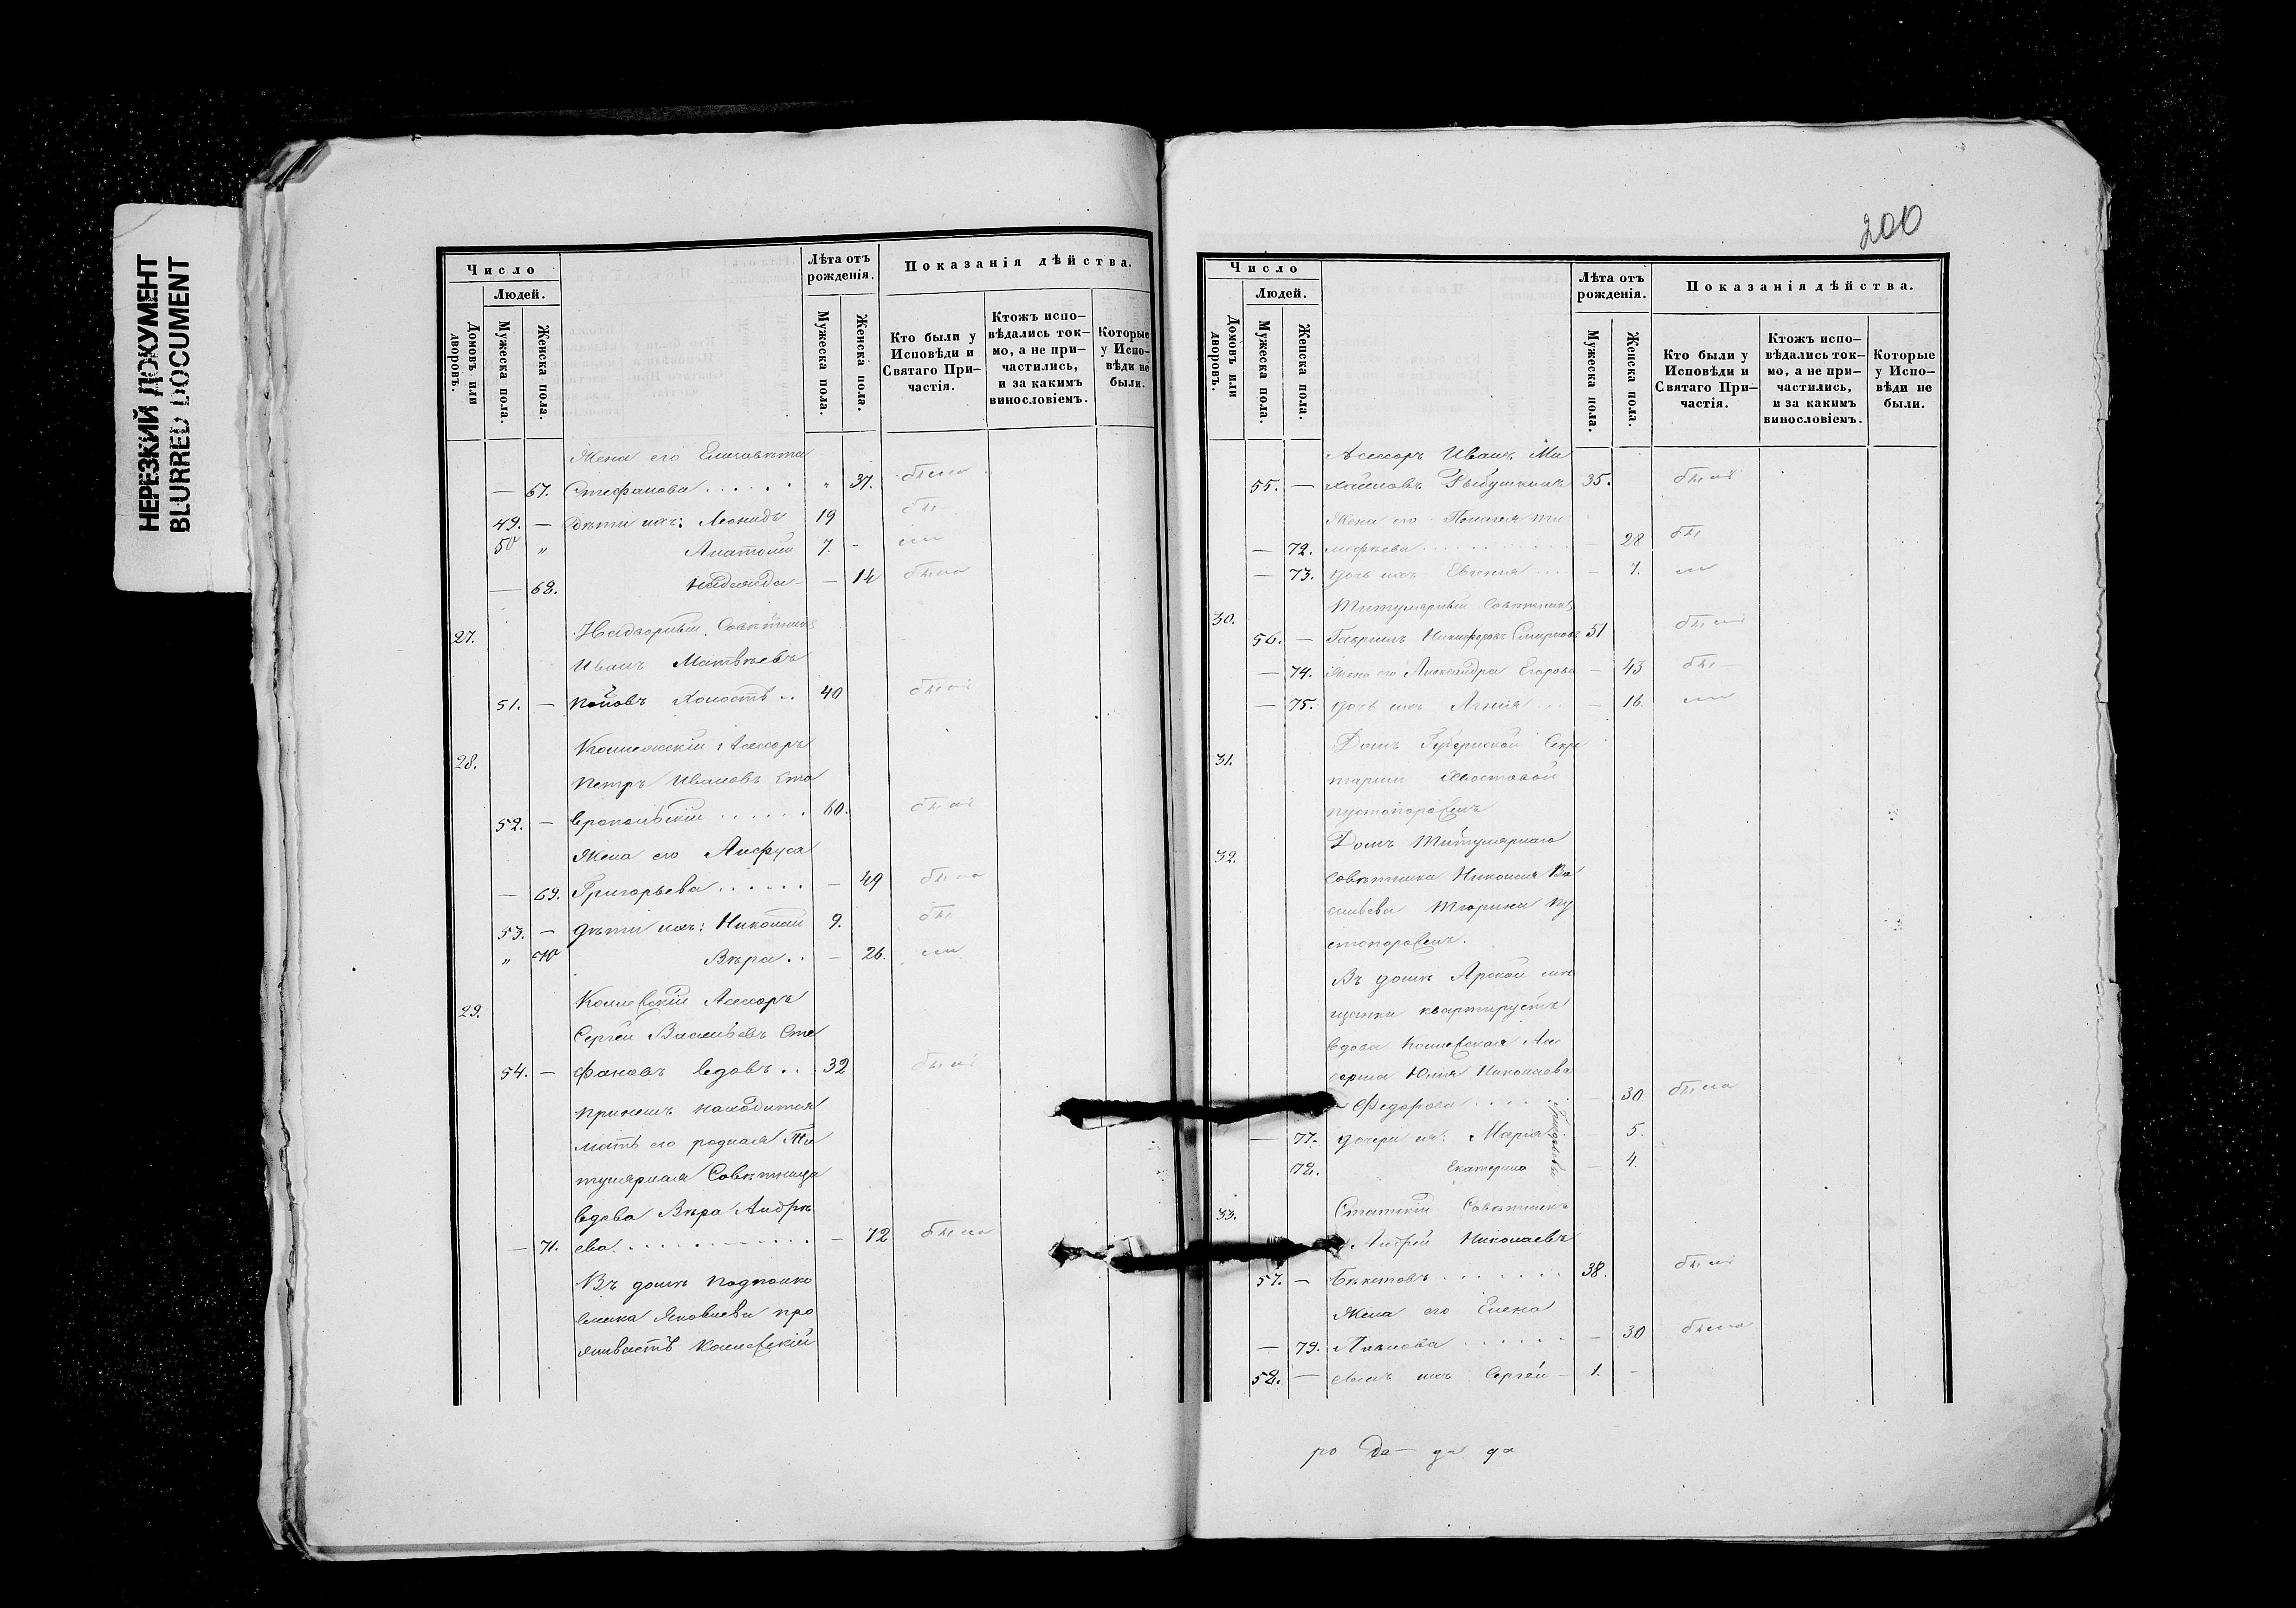 НЕРЕЗКИЙ ДОКУМЕНТ
BLURRED DOCUMENT
Число
Людей.
Домовъ или дворовъ.
Мужеска пола.
Женска пола.
Лѣта отъ рожденія.
Мужеска пола.
Женска пола.
Показанія дѣйства.
Кто были у Исповѣди и Святаго При–частія.
Ктожъ испо–вѣдались ток–мо, а не при–частились, и за какимъ винословіемъ.
Которые у Испо–вѣди не были.
Жена его Елисавѣта
— 67. Стефанова . . . . . " 37. была
49. — дѣти ихъ: Леонидъ 19 бы
50 " Анатолій 7. - ли
— 68. Надежда — — 14 была
27. Надворный Совѣтникъ
Иванъ Матвѣевъ
51. — Поповъ холостъ .. 40 былъ
28. Коллежскій Асессоръ
Петръ Ивановъ Ста
52. — вропольскій . . . . . . 60. былъ
Жена его Анфуса
— 69. Григорьева . . . . . . — 49 была
53. — дѣти ихъ: Николай 9. бы
" 70 Вѣра . . — 26. ли
29. Коллежскій Асессоръ
Сергѣй Васильевъ Сте
54. — фановъ вдовъ . . 32 былъ
при немъ находится
мать его родная Ти
тулярная Совѣтница
вдова Вѣра Андрѣ
— 71. ева . . . . . . . . . . . . — 72 была
Въ домѣ Подполко
вника Яковлева про
живаетъ Коллежскій
200
Число
Людей.
Домовъ или дворовъ.
Мужеска пола.
Женска пола.
Лѣта отъ рожденія.
Мужеска пола.
Женска пола.
Показанія дѣйства.
Кто были у Исповѣди и Святаго При–частія.
Ктожъ испо–вѣдались ток–мо, а не при–частились, и за какимъ винословіемъ.
Которые у Испо–вѣди не были.
Асессоръ Иванъ Ми
55. — хайловъ Рыбушкинъ 35. былъ
Жена его Пелагея Ти
— 72. мофѣева . . . . . . . . . . — 28 бы
— 73. дочь ихъ Евгенія . . . — 7. ли
30. Титулярный Совѣтникъ
56. — Гавріилъ Никифоровъ Смирновъ 51 былъ
— 74. Жена его Александра Егорова — 43 бы
— 75. дочь ихъ . . . — 16. ли
31. Домъ Губернской Секре
тарши Хвостовой
пустопорожнъ
32. Домъ Титулярнаго
Совѣтника Николая Ва
сильева Тюрина пу
стопорожнъ.
Въ домѣ Арской мѣ
щанки квартируетъ
вдова Коллежская Ас
серша Юлія Николаева
Федорова . . . . . — 30 была
— 77. дочери ея: Марія — 5.
78. Екатерина — 4.
33. Статскій Совѣтникъ
Андрей Николаевъ
57. — Бекетовъ . . . . . . . 38. былъ
Жена его Елена
— 79. Павлова . . . . . . — 30 была
58. — сынъ ихъ Сергѣй — 1. -
ро Да — да да